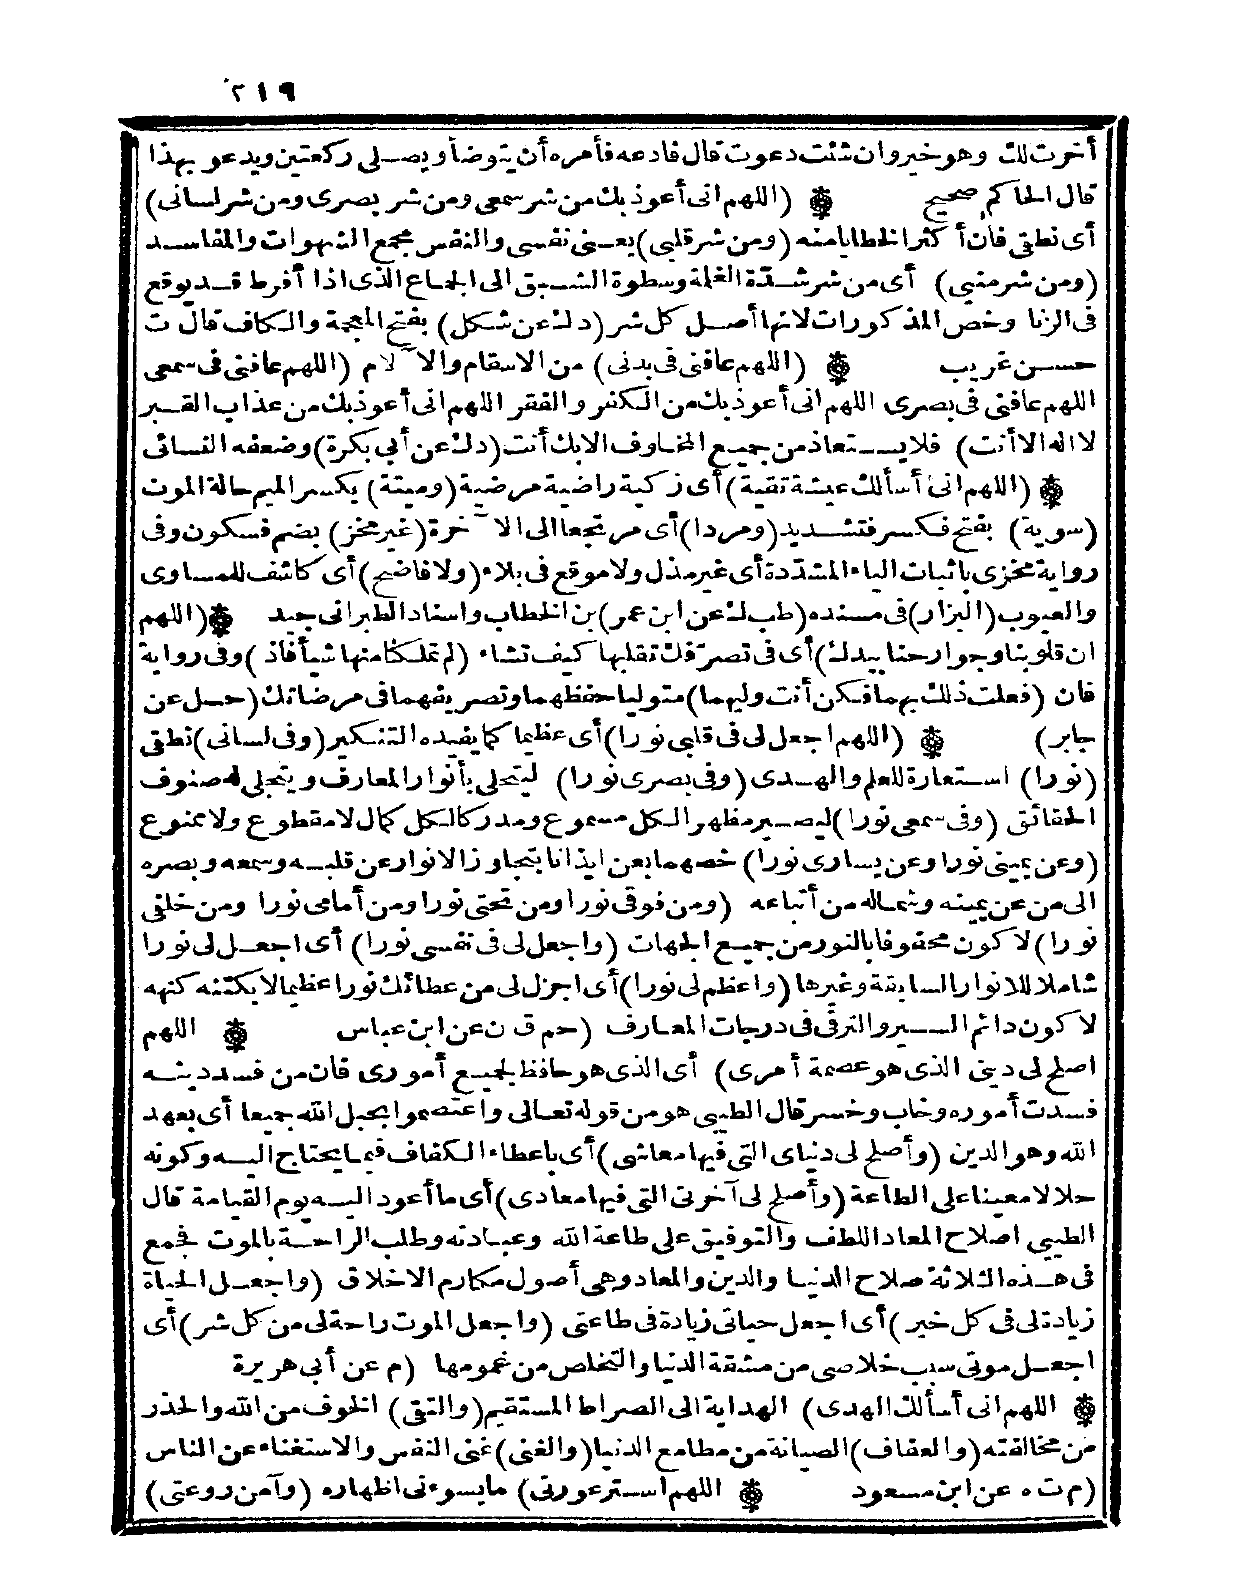 ٢١٩
أخرت لك وهو خير وان شئت دعوت قال فادعه فأمره أن يتوضأ ويصلى ركعتين ويدعو بهذا
قال الحاكم صحيح ۞ (اللهم انى أعوذ بك من شر سمعى ومن شر بصرى ومن شر لسانى)
أى نطقى فان أكثر الخطايا منه (ومن شر قلبى) يعنى نفسى والنفس مجمع الشهوات والمفاسد
(ومن شر منيى) أى من شر شدّة الغلمة وسطوة الشبق الى الجماع الذى اذا أفرط قد يوقع
فى الزنا وخص المذكورات لانها أصل كل شر (د ك عن شكل) بفتح المعجمة والكاف قال ت
حسن غريب ۞ (اللهم عافنى فى بدنى) من الاسقام والآلام (اللهم عافنى فى سمعى
اللهم عافنى فى بصرى اللهم انى أعوذ بك من الكفر والفقر اللهم انى أعوذ بك من عذاب القبر
لا اله الا أنت) فلا يستعاذ من جميع المخاوف الا بك أنت (د ك عن أبى بكرة) وضعفه النسائى
۞ (اللهم انى أسألك عيشة تقية) أى زكية راضية مرضية (وميتة) بكسر الميم حالة الموت
(سوية) بفتح فكسر فتشديد (ومردا) أى مرجعا الى الآخرة (غير مخز) بضم فسكون وفى
رواية مخزى باثبات الياء المشدّدة أى غير مذل ولا موقع فى بلاء (ولا فاضح) أى كاشف للمساوى
والعيوب (البزار) فى مسنده (طب ك عن ابن عمر) بن الخطاب واسناد الطبرانى جيد ۞ (اللهم
ان قلوبنا وجوارحنا بيدك) أى فى تصرّفك تقلبها كيف تشاء (لم تملكنا منها شيأ فاذ) وفى رواية
فان (فعلت ذلك بهما فكن أنت وليهما) متوليا حفظهما وتصريفهما فى مرضاتك (حل عن
جابر) ۞ (اللهم اجعل لى فى قلبى نورا) أى عظيما كما يفيده التنكير (وفى لسانى) نطقى
(نورا) استعارة للعلم والهدى (وفى بصرى نورا) ليتحلى بأنوار المعارف ويتجلى له صنوف
الحقائق (وفى سمعى نورا) ليصير مظهر الكل مسموع ومدركا لكل كمال لا مقطوع ولا ممنوع
(وعن يمينى نورا وعن يسارى نورا) خصهما بعن ايذانا بتجاوز الانوار عن قلبه وسمعه وبصره
الى من عن يمينه وشماله من أتباعه (ومن فوقى نورا ومن تحتى نورا ومن أمامى نورا ومن خلفى
نورا) لاكون محفوفا بالنور من جميع الجهات (واجعل لى فى نفسى نورا) أى اجعل لى نورا
شاملا للانوار السابقة وغيرها (واعظم لى نورا) أى اجزل لى من عطائك نورا عظيما لا يكتنه كنهه
لاكون دائم السير والترقى فى درجات المعارف (حم ق ن عن ابن عباس ۞ اللهم
اصلح لى دينى الذى هو عصمة أمرى) أى الذى هو حافظ لجميع أمورى فان من فسد دينه
فسدت أموره وخاب وخسر قال الطيبى هو من قوله تعالى واعتصموا بحبل الله جميعا أى بعهد
الله وهو الدين (وأصلح لى دنياى التى فيها معاشى) أى باعطاء الكفاف فيما يحتاج اليه وكونه
حلالا معينا على الطاعة (وأصلح لى آخرتى التى فيها معادى) أى ما أعود اليه يوم القيامة قال
الطيبى اصلاح المعاد اللطف والتوفيق على طاعة الله وعبادته وطلب الراحة بالموت فجمع
فى هذه الثلاثة صلاح الدنيا والدين والمعاد وهى أصول مكارم الاخلاق (واجعل الحياة
زيادة لى فى كل خير) أى اجعل حياتى زيادة فى طاعتى (واجعل الموت راحة لى من كل شر) أى
اجعل موتى سبب خلاصى من مشقة الدنيا والتخلص من غمومها (م عن أبى هريرة
۞ اللهم انى أسألك الهدى) الهداية الى الصراط المستقيم (والتقى) الخوف من الله والحذر
من مخالفته (والعفاف) الصيانة من مطامع الدنيا (والغنى) غنى النفس والاستغناء عن الناس
(م ت ه عن ابن مسعود ۞ اللهم استر عورتى) ما يسوءنى اظهاره (وآمن روعتى)